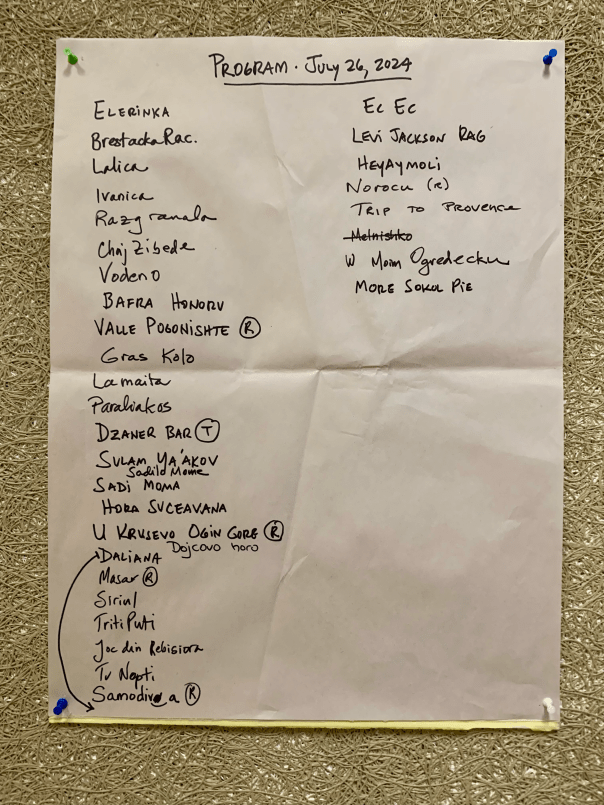 PROGRAM · JULY 26, 2024
ELERINKA
Brestacka Rac.
Lalica
Ivanica
Razgranala
Chaj Zibede
Vodeno
BAFRA HONORU
VALLE POGONISHTE (R)
Gras Kolo
La maita
Paraliakos
DZANER BAR (T)
SULAM YA'AKOV
Sadilo Mome
SADI MOMA
HORA SUCEAVANA
U KRUSEVO OGIN GORE (R)
Dojcovo horo
DALIANA
Masar (R)
Sirul
Triti Puti
Joc din Rebisiora
Tu Nopti
Samodiva (R)
Ec Ec
LEVI JACKSON RAG
HEYAYMOLI
NOROCU (R)
TRIP TO PROVENCE
Melnishko
W Moim Ogredecku
MORE SOKOL PIE